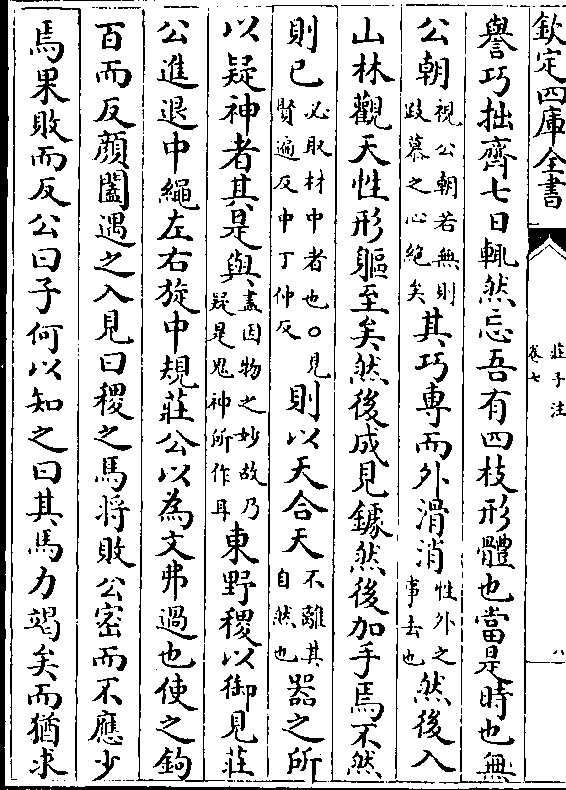 欽定四庫全書
莊子注
卷七
八
譽巧拙齊七日輒然忘吾有四枝形體也當是時也無
公朝視公朝若無則跂慕之心絶矣其巧専而外滑消性外之事去也然後入
山林觀天性形軀至矣然後成見鐻然後加手焉不然
則已必取材中者也○見賢遍反中丁仲反則以天合天不離其自然也器之所
以疑神者其是與盡因物之妙故乃疑是鬼神所作耳東野稷以御見莊
公進退中繩左右旋中規莊公以為文弗過也使之鉤
百而反顔闔遇之入見曰稷之馬將敗公宻而不應少
焉果敗而反公曰子何以知之曰其馬力竭矣而猶求